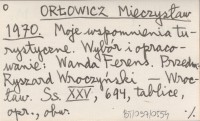 ORŁOWICZ Mieczysław
1970. Moje wspomnienia tu-
rystyczne. Wybór i opraco-
wanie: Wanda Ferens. Przedm.
Ryszard Wroczyński – Wroc-
ław. Ss XXV, 694, tablice,
opr., obw.